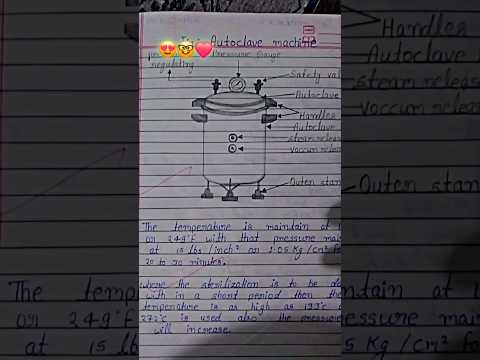 Autoclave machine
Pressure Gauge
regulating
Safety val
Autoclave
Handles
Autoclave
steam release
vaccum release
Outer stan
The temperature is maintain at 1
or 249°F with that pressure mai
at 15 lbs/inch² or 1.05 Kg/cm² fo
20 to 30 minutes.
where the sterilization is to be do
with in a short period then the
temperature is as high as
272°c is used also the pressure
will increase.
Handles
Autocla
steam releas
vaccum relea
Outer stan
The temp
or 249°F
at 15 lb
ntain at
sure mai
5 Kg/cm² fo